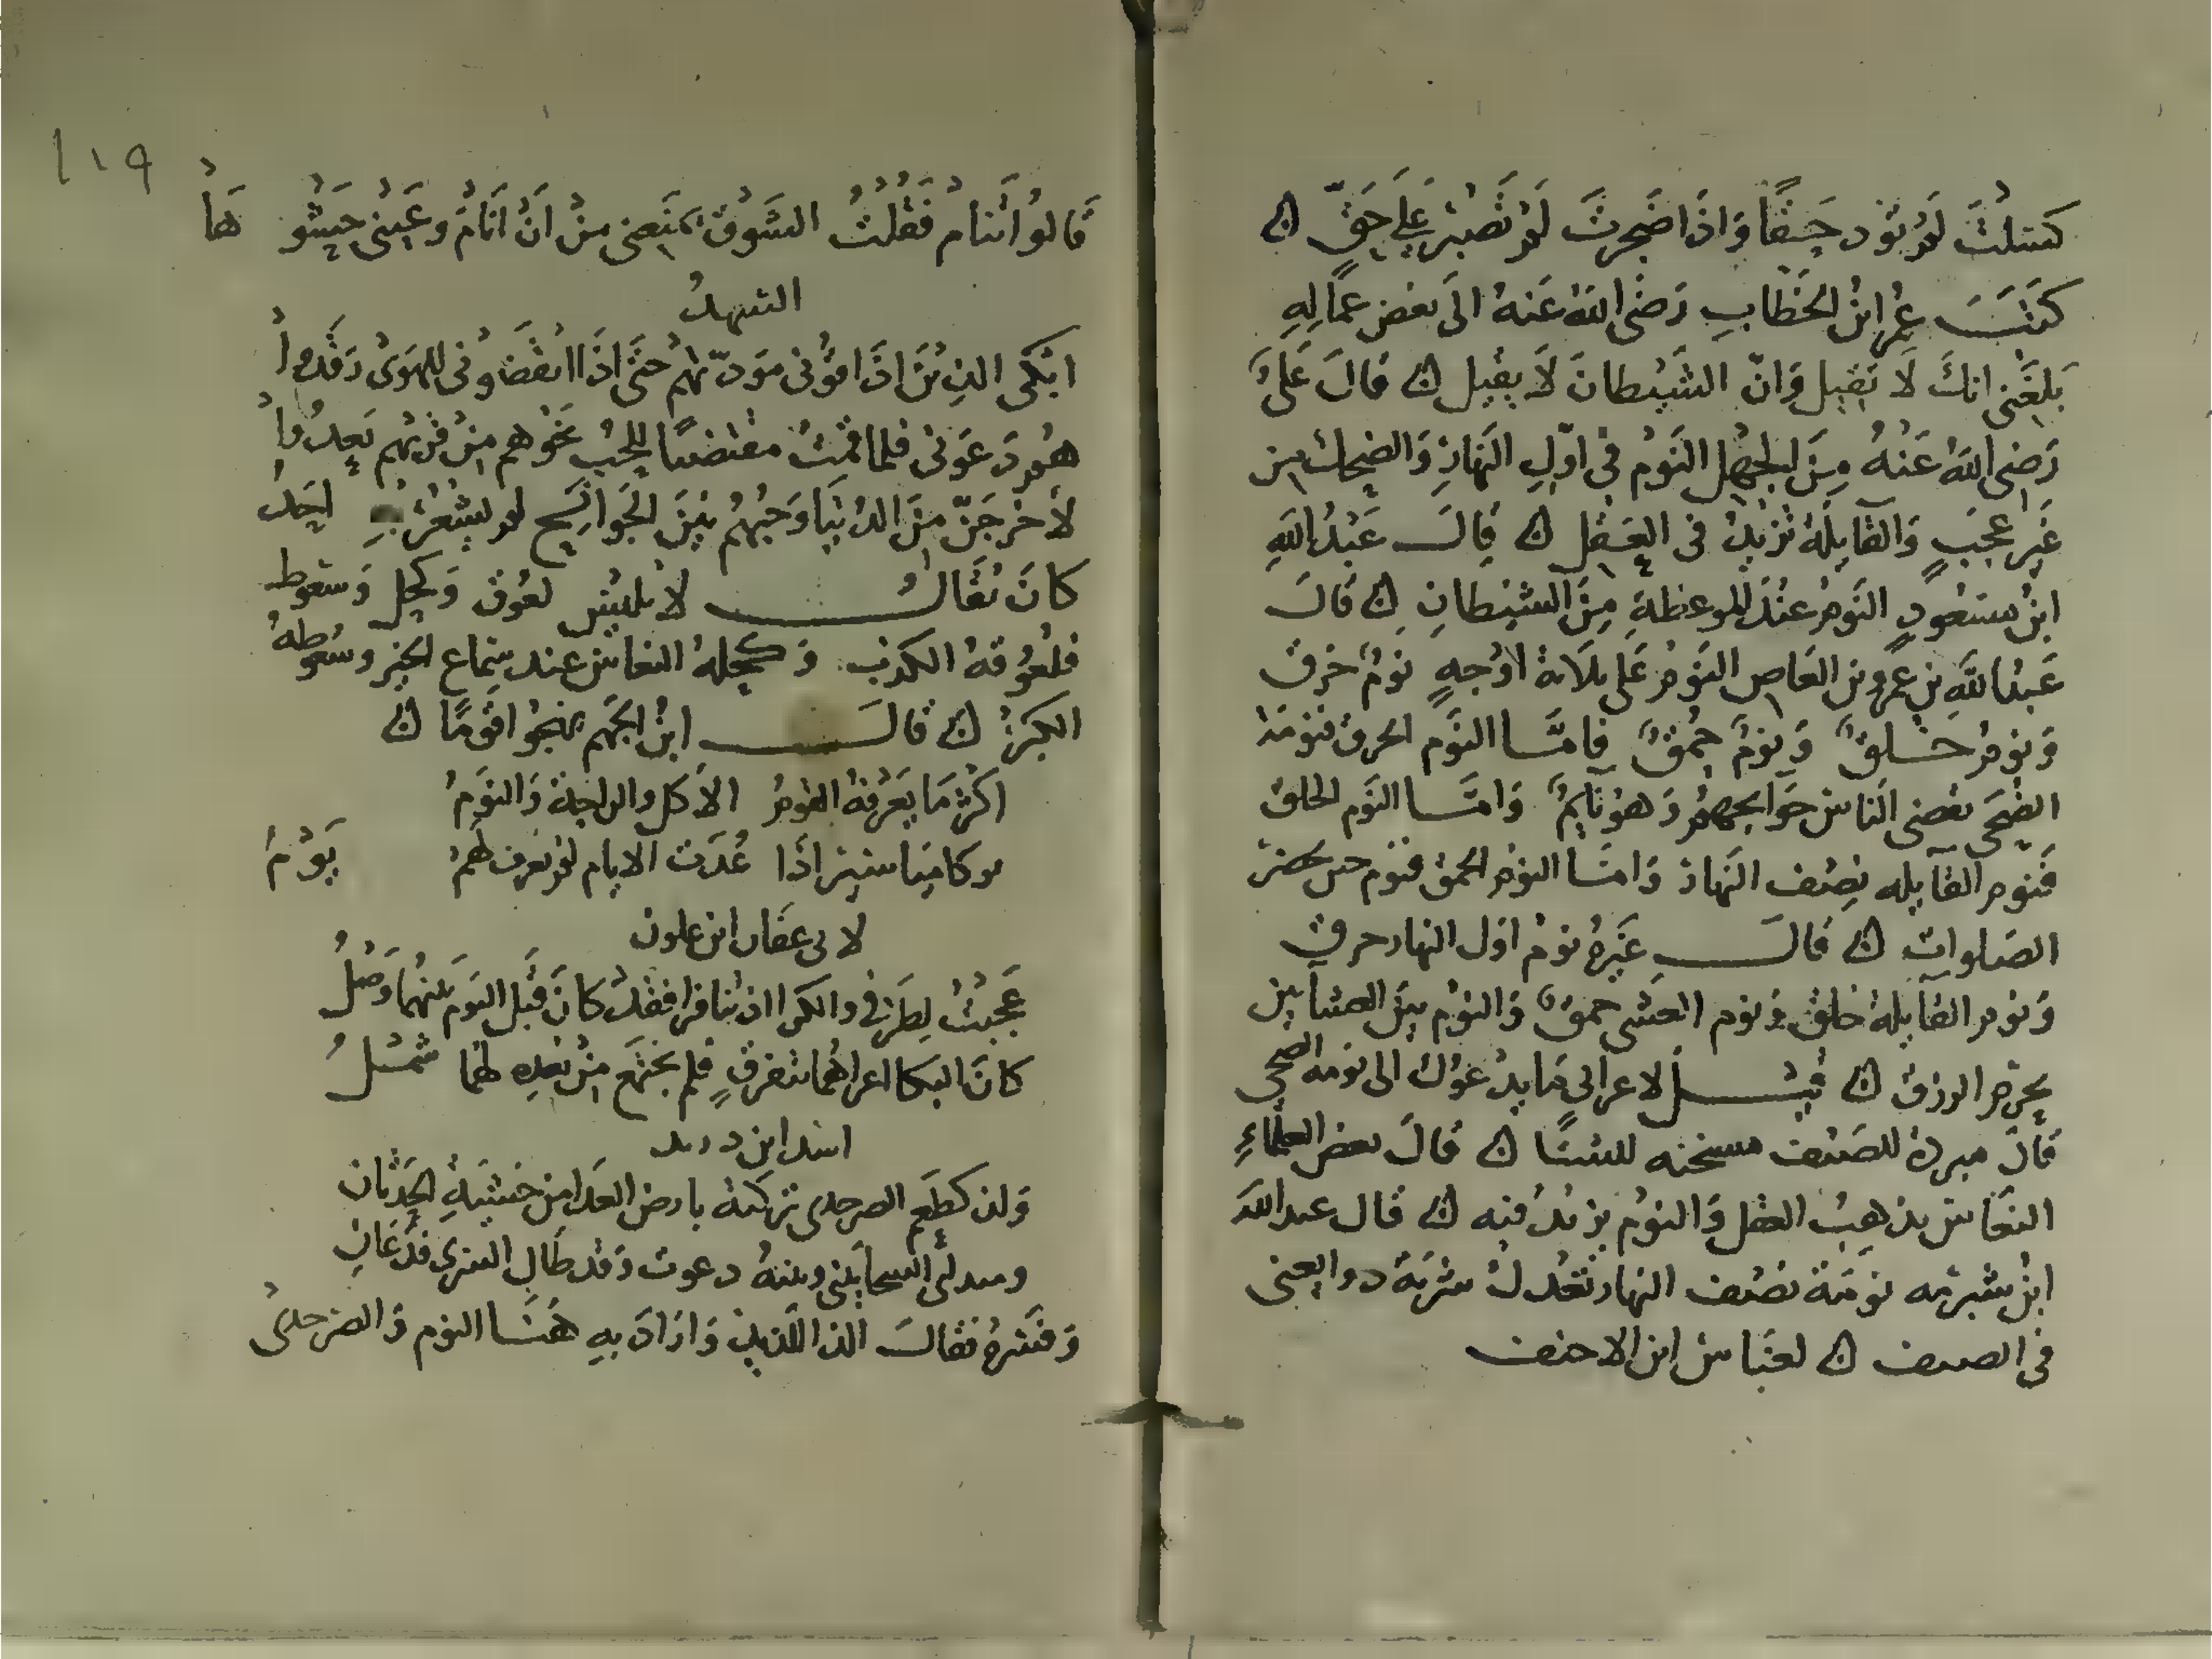 كسلت لم تود حقا واذا ضجرت لم تصبر على حق ن
كتب عمر ابن الخطاب رضى الله عنه الى بعض عماله
بلغنى انك لا تقيل وان الشيطان لا يقيل ن قال على
رضى الله عنه من الجهل النوم فى اول النهار والضحك من
غير عجب والقايلة تزيد فى العقل ن قال عبد الله
ابن مسعود النوم عند الموعظة من الشيطان ن قال
عبد الله بن عمرو بن العاص النوم على ثلاثة اوجه نوم خرق
ونوم خلق ونوم حمق فاما النوم الخرق فنومة
الضحى يقضى الناس حوايجهم وهو نايم واما النوم الخلق
فنوم القايله نصف النهار واما النوم الحمق فنوم حين تحضر
الصلوات ن قال غيره نوم اول النهار خرق
ونوم القايلة خلق ونوم العشى حمق والنوم بين العشايين
يحرم الرزق ن قيل لاعرابى ما يدعوك الى نومة الضحى
قال مبردة للصيف مسخنه للشتا ن قال بعض العلماء
النعاس يذهب العقل والنوم يزيد فيه ن قال عبد الله
ابن شبرمه نومة نصف النهار تعدل شربة دوا يعنى
فى الصيف ن لعباس ابن الاحنف
119
قالوا اتنام فقلت الشوق يمنعنى من ان انام وعينى حشوها
السهد
ابكى الذين اذاقونى مودتهم حتى اذا ايقضونى للهوى رقدوا
هم دعونى فلما قمت مقتضيا للحب نحوهم من قربهم بعدوا
لأخرجن من الدنيا وحبهم بين الجوانح لم يشعر به احد
كان يقال لابليس لعوق وكحل وسعوط
فلعوقه الكذب وكحله النعاس عند سماع الخير وسعوطه
الكبر ن قال ابن الجهم يهجوا قوما ن
اكثر ما يعرفه القوم الاكل والراحة والنوم
عدت الايام لم يعرف لهم يوم
لابى عفان ابن علون
عجبت لطرفى والكرا اذ تنافرا فقد كان قبل اليوم بينهما وصل
كان البكا اغراهما بتفرق فلم يجتمع من بعده لهما شمل
انشد ابن دريد
ولذ كطعم الصرخدى تركته بارض العدا من خشية الحدثان
ومبد لى الشحنا بينى وبينه دعوت وقد طال السرى فدعانى
وفسره فقال الذ اللذيذ واراد به هنا النوم والصرخدى